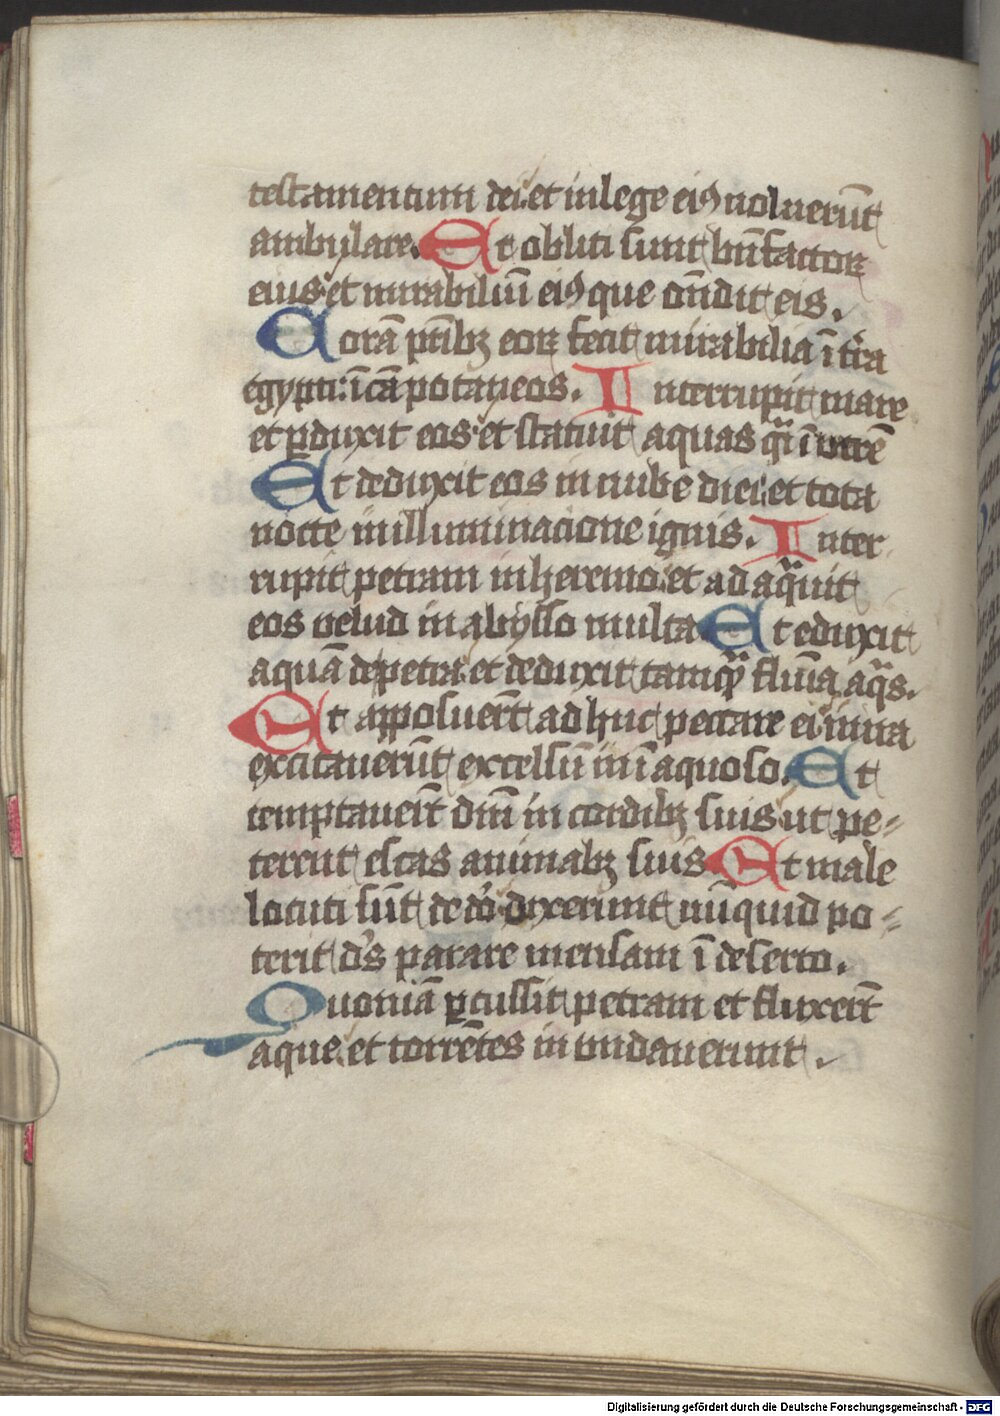 testamentum dei et in lege eiꝰ noluerūt
ambulare. Et obliti sunt bn̄factoꝝ
eius et mirabiliū eiꝰ que on̄dit eis.
Corā pr̄ibꝫ eoꝝ fecit mirabilia ī t̄ra
egypti: ī cāpo taneos. Interrupit mare
et ꝑduxit eos et statuit aquas q̄i ī utrē
Et deduxit eos in nube diei: et tota
nocte in illuminacione ignis. Inter
rupit petram in heremo et adaq̄uit
eos velud in abysso multa Et eduxit
aquā de petra et deduxit tamqᷓ flu̅ia aqᷓs.
Et apposuer̄t ad huc peccare ei in ira
excitauerūt excelsū in īaquoso. Et
temptauer̄t dm̄ in cordibꝫ suis ut pe-
terent escas animabꝫ suis Et male
locuti sūt de dō dixerunt nūquid po-
terit ds̄ parare mensam ī deserto.
Quoniā ꝑcussit petram et fluxer̄t
aque et torrētes in undauerunt.
Digitalisierung gefördert durch die Deutsche Forschungsgemeinschaft - DFG